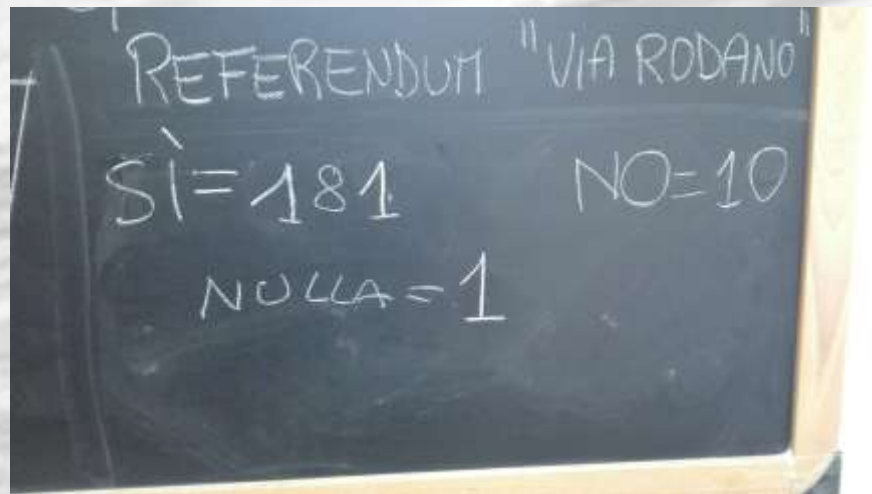 REFERENDUM "VIA RODANO"
SÌ=181 NO=10
NULLA=1